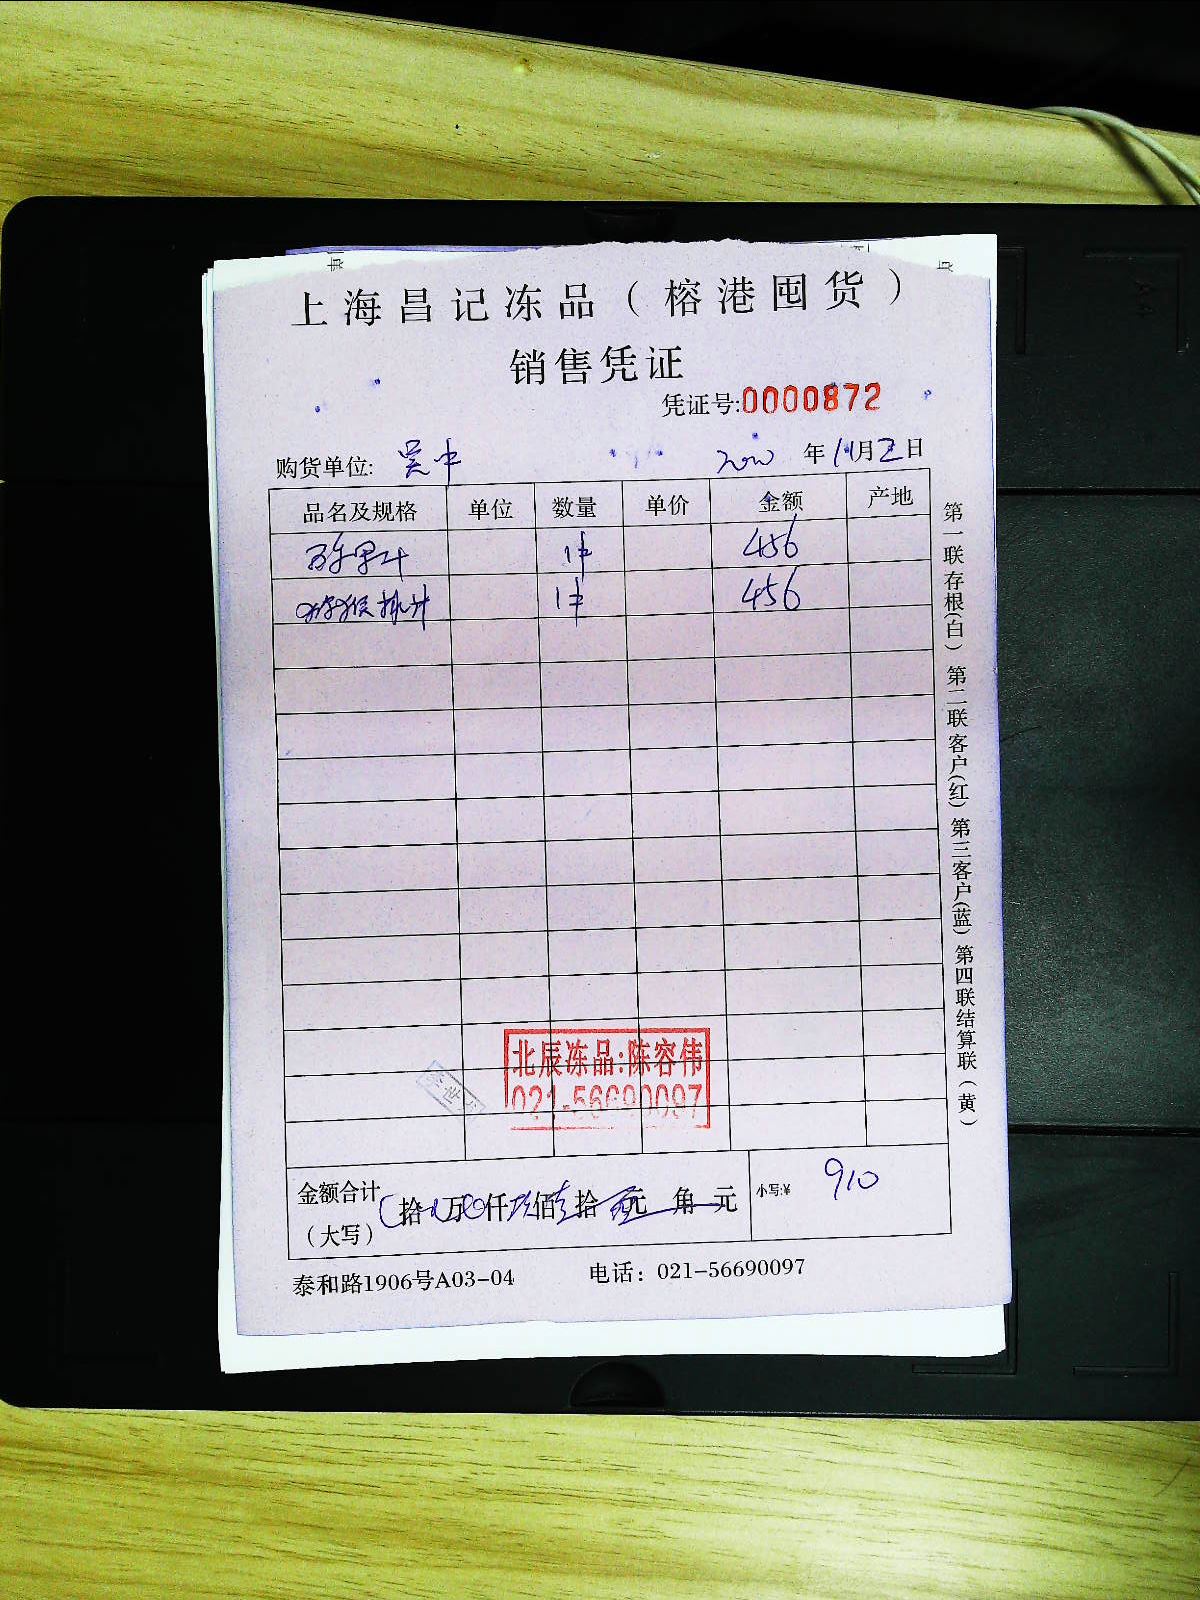 上海昌记冻品（榕港囤货）
销售凭证
凭证号:0000872
购货单位: 吴中 年11月2日
品名及规格 单位 数量 单价 金额 产地
1件 456
1件 456
北辰冻品:陈容伟
021-56690097
金额合计（大写） 拾 万 仟 佰 拾 元 角 元 小写:¥ 910
泰和路1906号A03-04 电话：021-56690097
第一联存根(白) 第二联客户(红) 第三客户(蓝) 第四联结算联(黄)